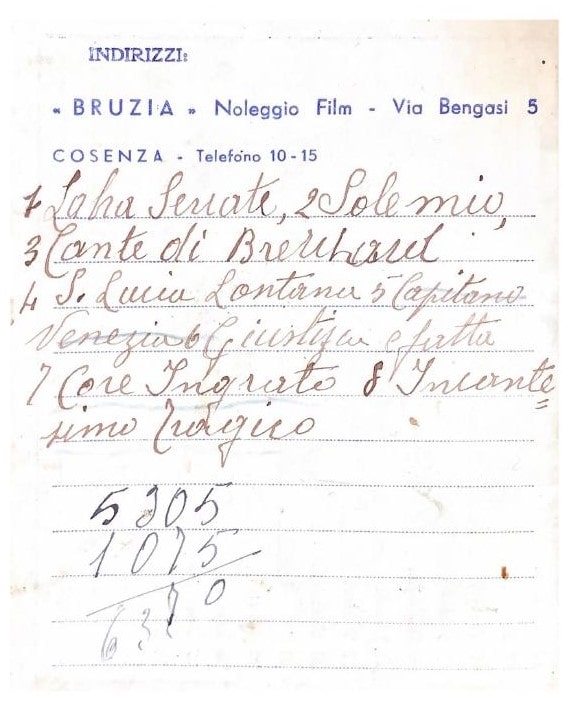 INDIRIZZI:
« BRUZIA » Noleggio Film - Via Bengasi 5
COSENZA - Telefono 10-15
1 Senate, 2 Sole mio,
3 Cante di
4 S. Lucia Lontana 5 Capitano
Venezia 6 Giustizia e fatta
7 Core Ingrato 8 Incante=
simo Tragico
5305
1075
6370